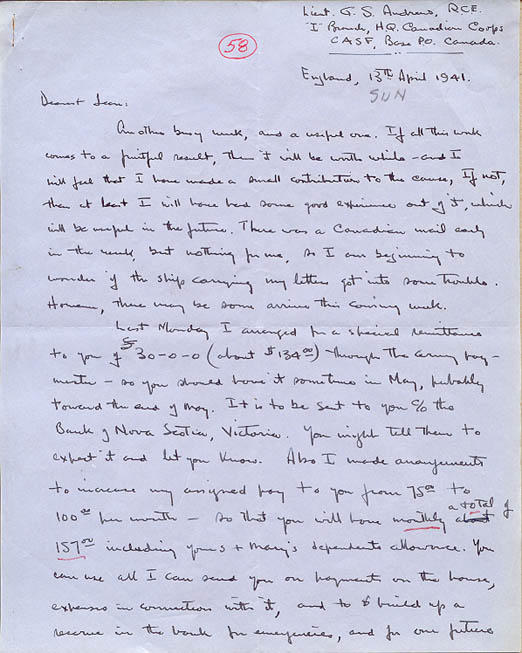 Lieut. G. S. Andrews, RCE.
"I" Branch, H.Q. Canadian Corps
CASF, Base P.O. Canada.
58
England, 13TH April 1941.
SUN
Dearest Jean:
Another busy week, and a useful one. If all this work
comes to a fruitful result, then it will be worth while - and I
will feel that I have made a small contribution to the cause, If not,
then at least I will have had some good experience out of it, which
will be useful in the future. There was a Canadian mail early
in the week, but nothing for me, so I am beginning to
wonder if the ship carrying my letters got into some trouble.
However, there may be some arrive this coming week.
Last Monday I arranged for a special remittance
to you of £ 30-0-0 (about $134.00) through the army pay-
master - so you should have it sometime in May, probably
toward the end of May. It is to be sent to you c/o the
Bank of Nova Scotia, Victoria. You might tell them to
expect it and let you know. Also I made arrangements
to increase my assigned pay to you from 75.00 to
100.00 per month - so that you will have monthly about a total of
157.00 including yours + Mary's dependents allowance. You
can use all I can send you on payments on the house,
expenses in connection with it, and to build up a
reserve in the bank for emergencies, and for our future